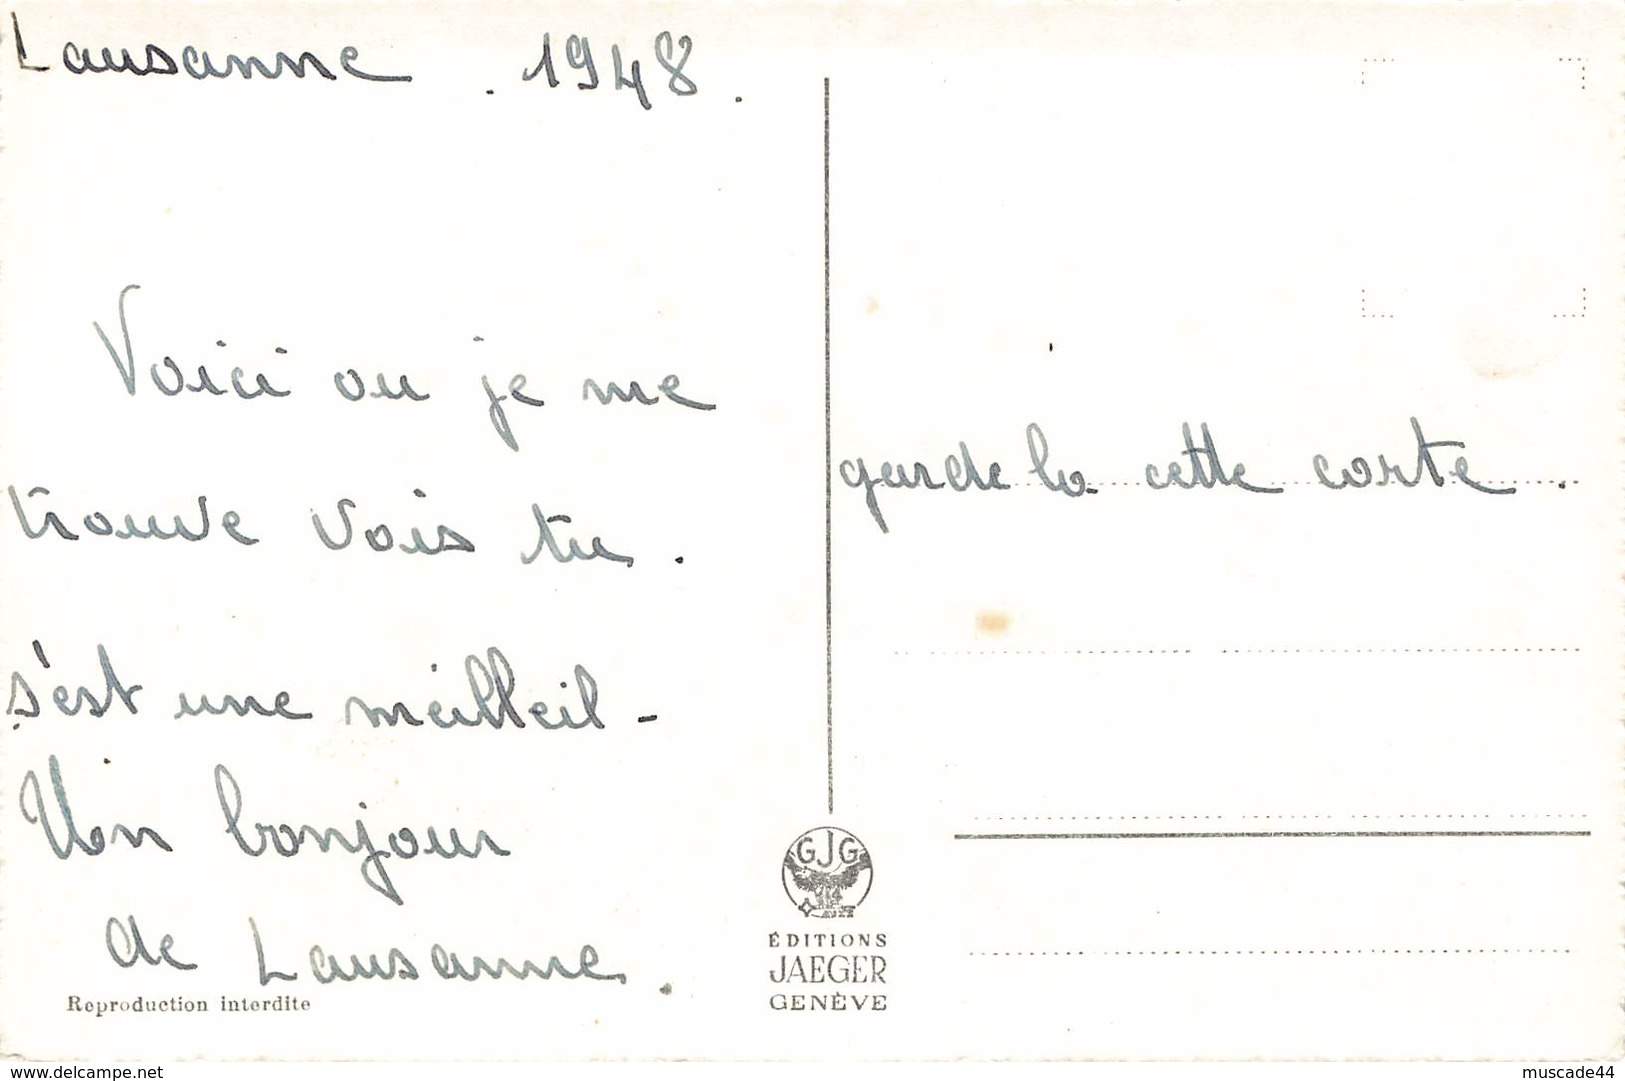 Lausanne . 1948.
Voici ou je me
trouve vois tu.
s'est une meilleil -
Un bonjour
de Lausanne.
Reproduction interdite
garde la cette carte.
GJG
ÉDITIONS
JAEGER
GENÈVE
www.delcampe.net
muscade44